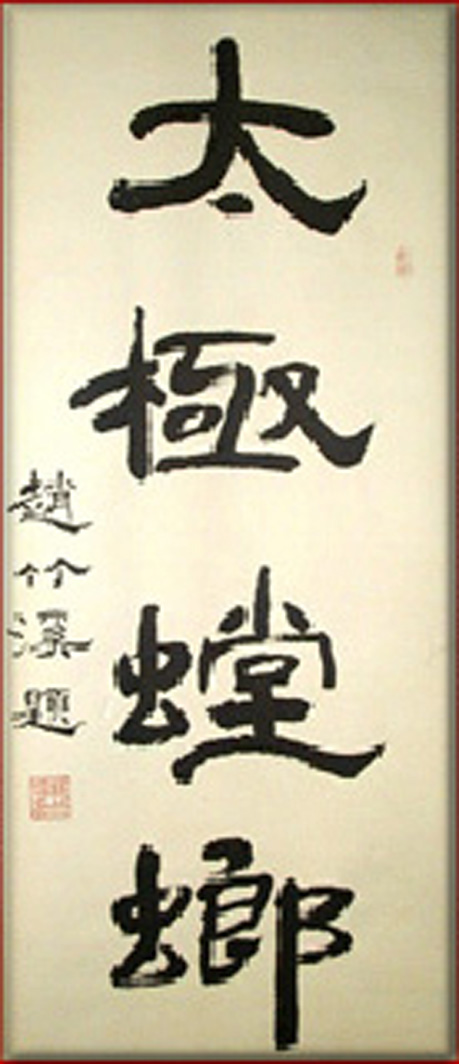 太極螳螂
趙竹溪題